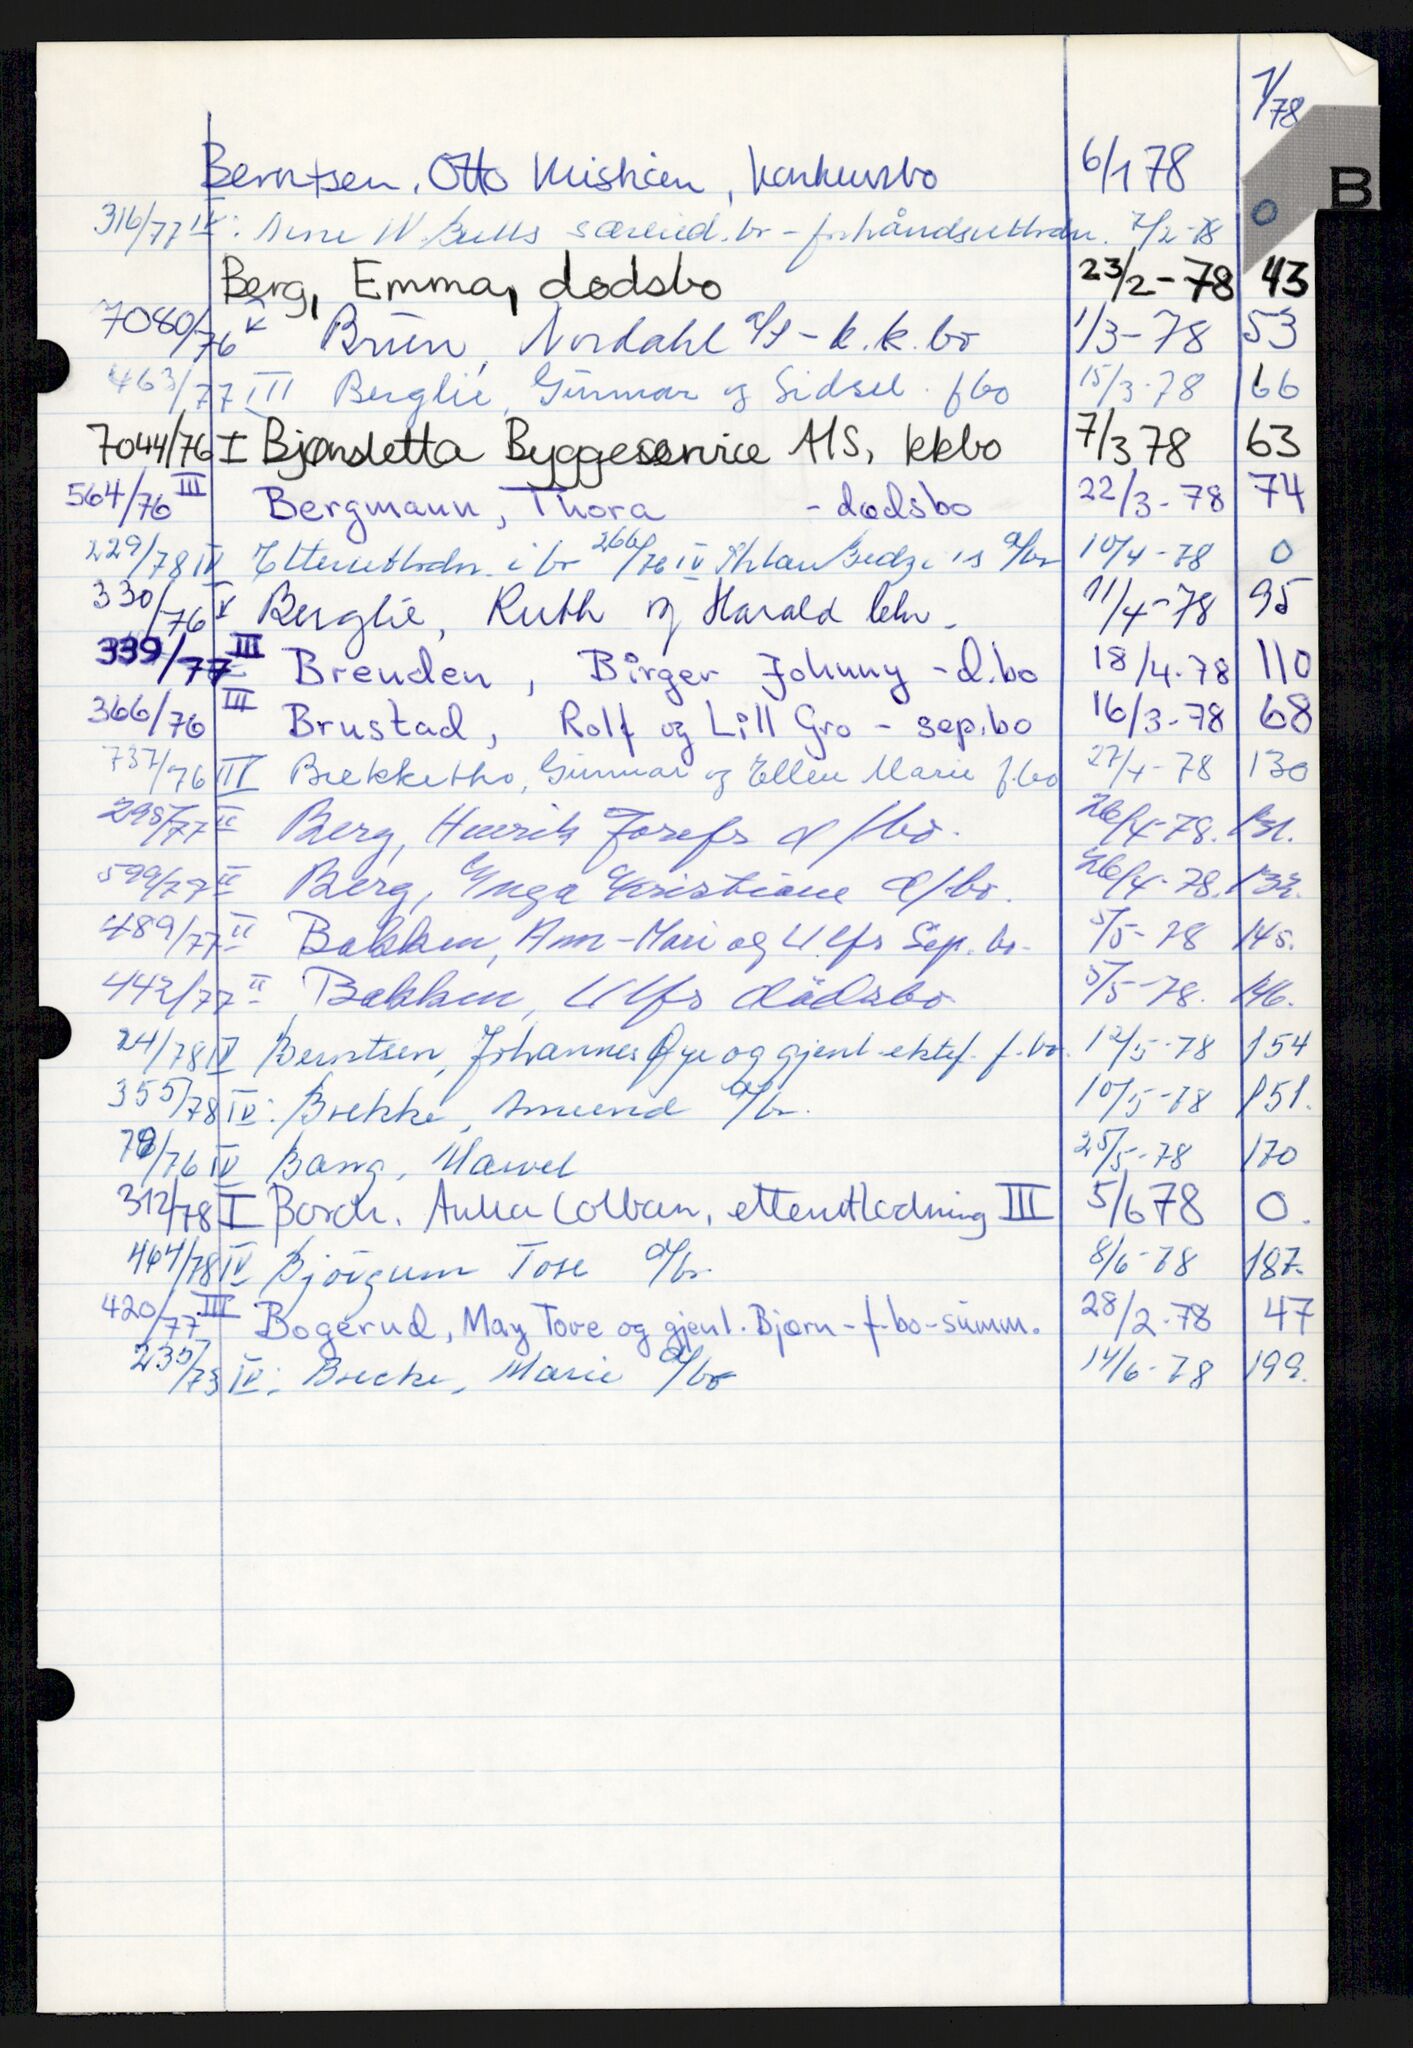 1/78
B
Berntsen, Otto Kristian, konkursbo 6/1 78
316/77 IV: Arne W. særeied. bo - forhåndsutlodn. 7/2-78 0
Berg, Emma, dødsbo 23/2-78 43
7080/76 V Brun, Nordahl A/S - k.k.bo 1/3-78 53
463/77 III Berglie, Gunnar og Sidsel fbo 15/3-78 66
7044/76 I Bjønsletta Byggeservice A/S, kkbo 7/3 78 63
564/76 III Bergmann, Thora - dødsbo 22/3-78 74
229/78 IV Etterutlodn. i bo 266/76 IV d/bo 10/4-78 0
330/76 V Berglie, Ruth og Harald 11/4-78 95
339/77 III Brenden, Birger Johnny - d.bo 18/4-78 110
366/76 III Brustad, Rolf og Lill Gro - sep.bo 16/3-78 68
737/76 III Brekketho, Gunnar og Ellen Marie f.bo 27/4-78 130
295/77 II Berg, Henrik Josefs d/bo. 26/4-78. 131.
599/77 II Berg, Inga Kristiane d/bo. 26/4-78. 132.
489/77 II Bakken, Ann-Mari og Ulfs Sep. bo- 5/5-78 145.
442/77 II Bakken, Ulfs dödsbo 5/5-78. 146.
24/78 IV Berntsen, Johannes Øye og gjenl. ektef. f.bo. 12/5-78 154
355/78 IV: Brekke, Amund d/bo. 10/5-78 151.
78/76 IV Bang, 25/5-78 170
312/78 I Borch, Anna Colban, etterutlodning III 5/6 78 0.
464/78 IV Bjørgum Tore d/bo. 8/6-78 187.
420/77 III Bogerud, May Tove og gjenl. Bjørn - f.bo - summ. 28/2-78 47
235/73 IV: Marie d/bo 14/6-78 199.